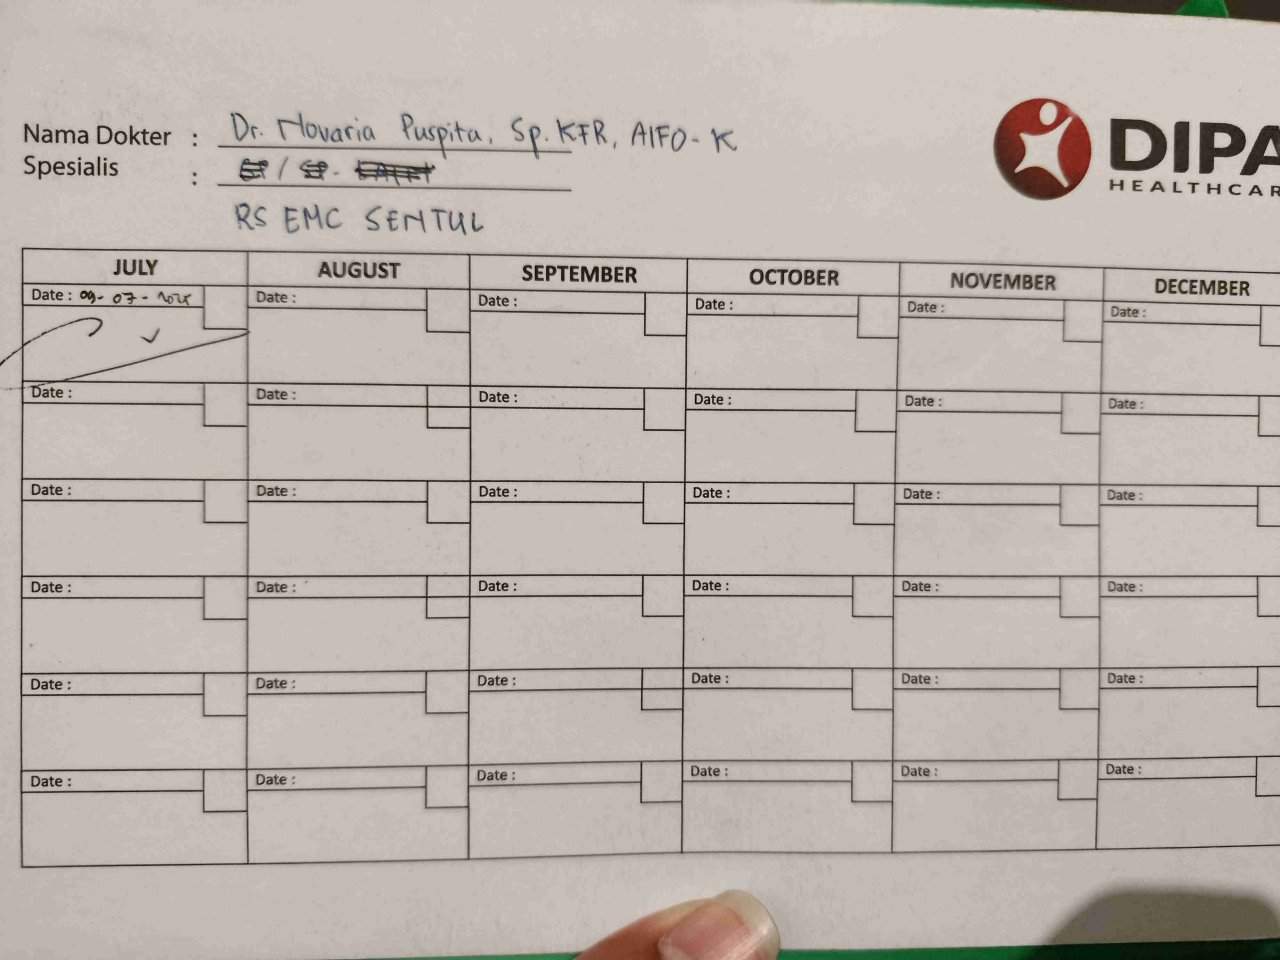 Nama Dokter : Dr. Novaria Puspita, Sp.KFR, AIFO-K
Spesialis :
RS EMC SENTUL
DIPA
HEALTHCAR
JULY AUGUST SEPTEMBER OCTOBER NOVEMBER DECEMBER
Date : 09-07-2025 Date : Date : Date : Date : Date :
Date : Date : Date : Date : Date : Date :
Date : Date : Date : Date : Date : Date :
Date : Date : Date : Date : Date : Date :
Date : Date : Date : Date : Date : Date :
Date : Date : Date : Date : Date : Date :